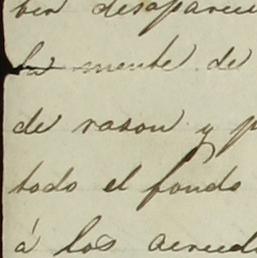 ben desaparec
la mente de
de rason y p
todo el fondo
á los acreed